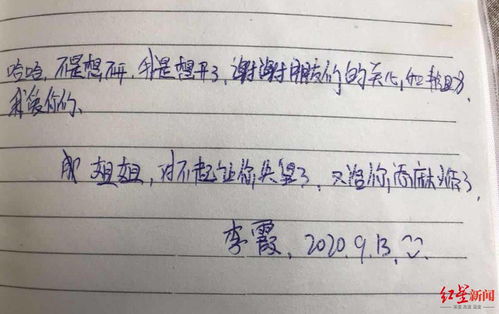 哈哈，不是想不开，我是想开了，谢谢朋友们的关心，和帮助，
我爱你们。
姐姐，对不起让你失望了，又给你添麻烦了，
李霞，2020.9.13，
红星新闻
深度 态度 温度